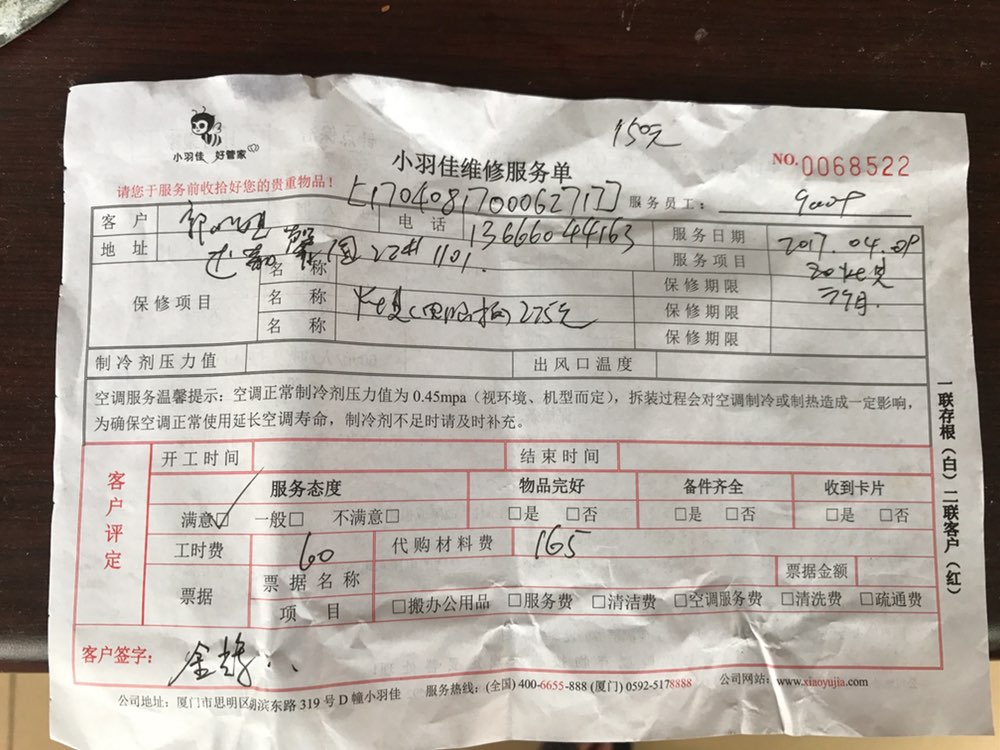 150元
小羽佳 好管家
小羽佳维修服务单
NO.0068522
请您于服务前收拾好您的贵重物品！
[170408170006271]
服务员工：
客户
电话 13666044163
服务日期 2017.04.09
地址 22# 1101.
服务项目
保修项目
名称
保修期限 三个月.
名称 275元
保修期限
名称
保修期限
制冷剂压力值 出风口温度
空调服务温馨提示：空调正常制冷剂压力值为 0.45mpa（视环境、机型而定），拆装过程会对空调制冷或制热造成一定影响，
为确保空调正常使用延长空调寿命，制冷剂不足时请及时补充。
一联存根（白）二联客户（红）
客户评定
开工时间 结束时间
服务态度 物品完好 备件齐全 收到卡片
满意☑ 一般□ 不满意□ □是 □否 □是 □否 □是 □否
工时费 60 代购材料费 165
票据 票据名称 票据金额
项目 □搬办公用品 □服务费 □清洁费 □空调服务费 □清洗费 □疏通费
客户签字：
公司地址：厦门市思明区湖滨东路 319 号 D 幢小羽佳 服务热线：(全国) 400-6655-888 (厦门) 0592-5178888 公司网站：www.xiaoyujia.com